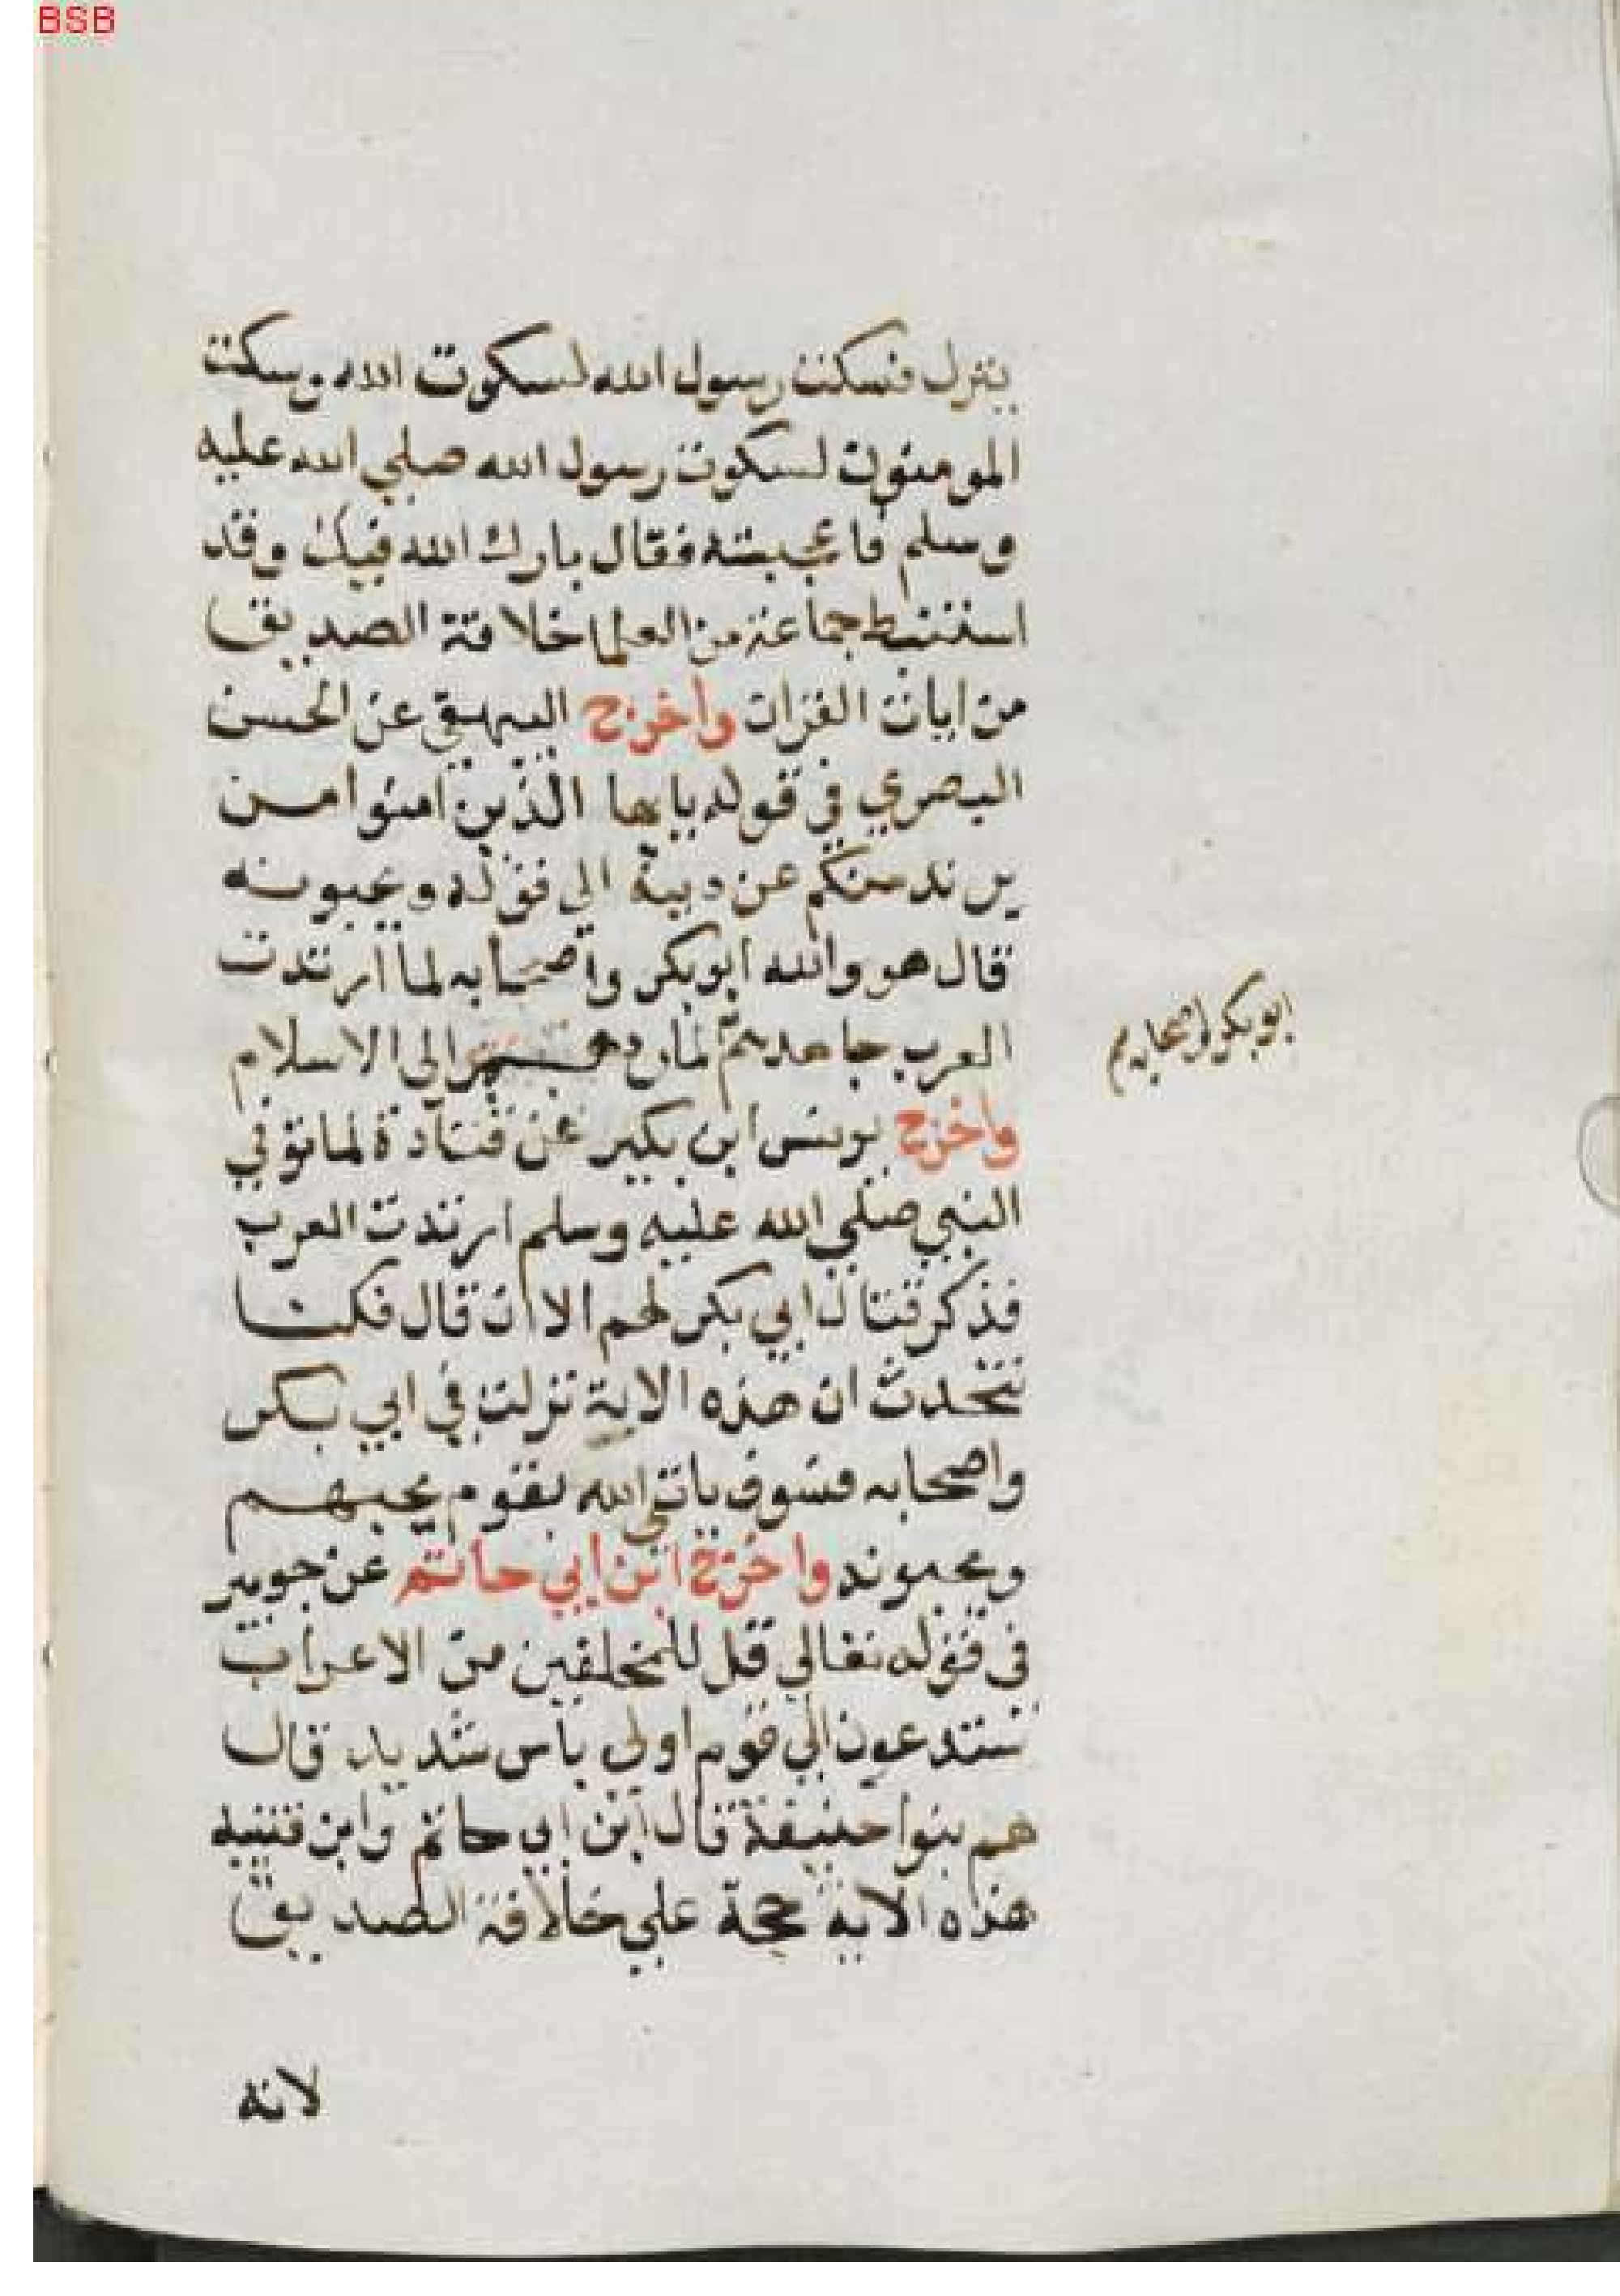 BSB
ينزل فسكت رسول الله لسكوت الله وسكت
المومنون لسكوت رسول الله صلي الله عليه
وسلم فاعجبته فقال بارك الله فيك وقد
استنبط جماعة من العلما خلافة الصديق
من ايات القران واخرج البيهقي عن الحسن
البصري في قوله يايها الذين امنوا من
يرتد منكم عن دينه الي قوله ويحبونه
قال هو والله ابو بكر واصحابه لما ارتدت
العرب جاهدهم الي الاسلام
ابو بكر
واخرج يونس ابن بكير عن قتادة لما توفي
النبي صلي الله عليه وسلم ارتدت العرب
فذكر قتال ابي بكر لهم الا ان قال فكنا
نتحدث ان هذه الاية نزلت في ابي بكر
واصحابه فسوف ياتي الله بقوم يحبهم
ويحبونه واخرج ابن ابي حاتم عن جويبر
في قوله تعالي قل للمخلفين من الاعراب
ستدعون الي قوم اولي باس شديد قال
هم بنوا حنيفة قال ابن ابي حاتم وابن قتيبه
هذه الاية حجة علي خلافة الصديق
لانه